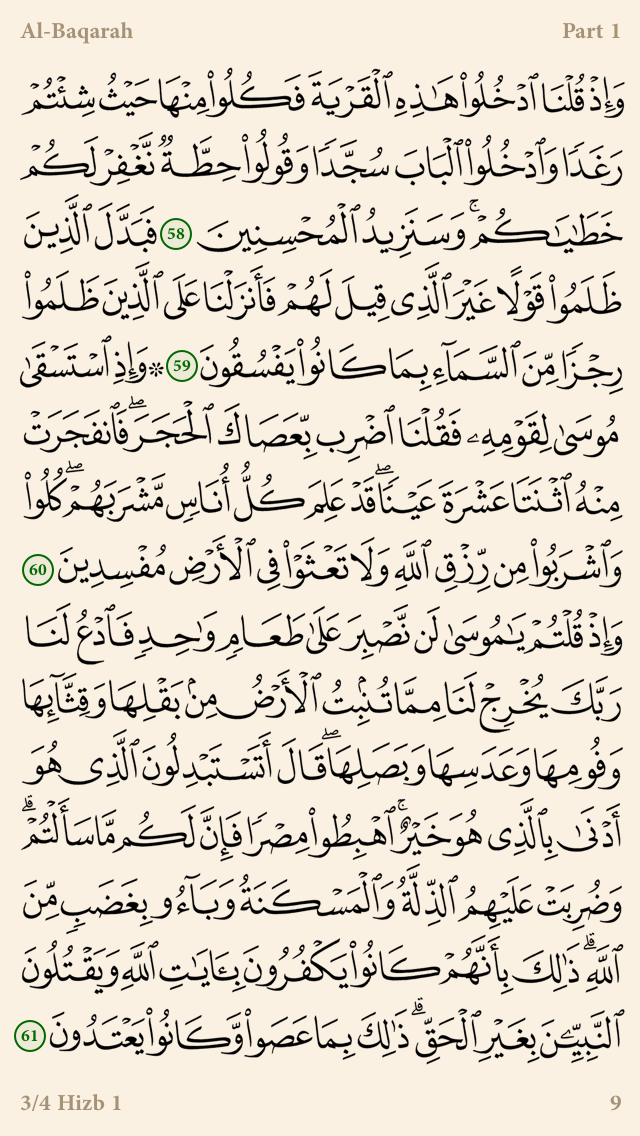 Al-Baqarah
Part 1
وَإِذْ قُلْنَا ٱدْخُلُوا۟ هَـٰذِهِ ٱلْقَرْيَةَ فَكُلُوا۟ مِنْهَا حَيْثُ شِئْتُمْ
رَغَدًا وَٱدْخُلُوا۟ ٱلْبَابَ سُجَّدًا وَقُولُوا۟ حِطَّةٌ نَّغْفِرْ لَكُمْ
خَطَـٰيَـٰكُمْ ۚ وَسَنَزِيدُ ٱلْمُحْسِنِينَ 58 فَبَدَّلَ ٱلَّذِينَ
ظَلَمُوا۟ قَوْلًا غَيْرَ ٱلَّذِى قِيلَ لَهُمْ فَأَنزَلْنَا عَلَى ٱلَّذِينَ ظَلَمُوا۟
رِجْزًا مِّنَ ٱلسَّمَآءِ بِمَا كَانُوا۟ يَفْسُقُونَ 59 ۞ وَإِذِ ٱسْتَسْقَىٰ
مُوسَىٰ لِقَوْمِهِۦ فَقُلْنَا ٱضْرِب بِّعَصَاكَ ٱلْحَجَرَ ۖ فَٱنفَجَرَتْ
مِنْهُ ٱثْنَتَا عَشْرَةَ عَيْنًا ۖ قَدْ عَلِمَ كُلُّ أُنَاسٍ مَّشْرَبَهُمْ ۖ كُلُوا۟
وَٱشْرَبُوا۟ مِن رِّزْقِ ٱللَّهِ وَلَا تَعْثَوْا۟ فِى ٱلْأَرْضِ مُفْسِدِينَ 60
وَإِذْ قُلْتُمْ يَـٰمُوسَىٰ لَن نَّصْبِرَ عَلَىٰ طَعَامٍ وَٰحِدٍ فَٱدْعُ لَنَا
رَبَّكَ يُخْرِجْ لَنَا مِمَّا تُنۢبِتُ ٱلْأَرْضُ مِنۢ بَقْلِهَا وَقِثَّآئِهَا
وَفُومِهَا وَعَدَسِهَا وَبَصَلِهَا ۖ قَالَ أَتَسْتَبْدِلُونَ ٱلَّذِى هُوَ
أَدْنَىٰ بِٱلَّذِى هُوَ خَيْرٌ ۚ ٱهْبِطُوا۟ مِصْرًا فَإِنَّ لَكُم مَّا سَأَلْتُمْ ۗ
وَضُرِبَتْ عَلَيْهِمُ ٱلذِّلَّةُ وَٱلْمَسْكَنَةُ وَبَآءُو بِغَضَبٍ مِّنَ
ٱللَّهِ ۗ ذَٰلِكَ بِأَنَّهُمْ كَانُوا۟ يَكْفُرُونَ بِـَٔايَـٰتِ ٱللَّهِ وَيَقْتُلُونَ
ٱلنَّبِيِّـۧنَ بِغَيْرِ ٱلْحَقِّ ۗ ذَٰلِكَ بِمَا عَصَوا۟ وَّكَانُوا۟ يَعْتَدُونَ 61
3/4 Hizb 1
9